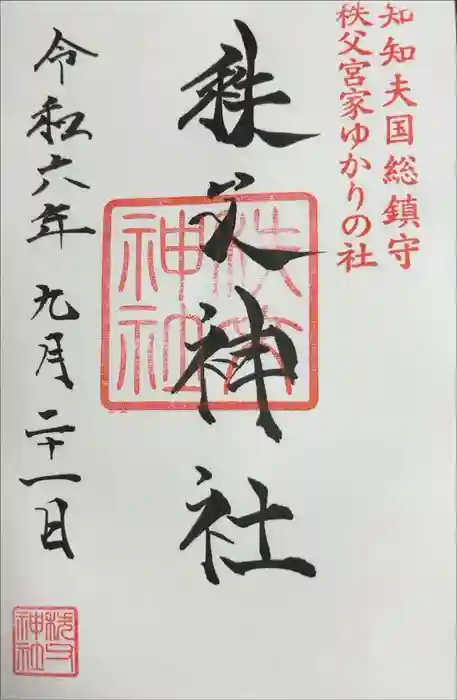 知知夫国総鎮守
秩父宮家ゆかりの社
秩父神社
秩父神社
令和六年 九月二十一日
秩父神社